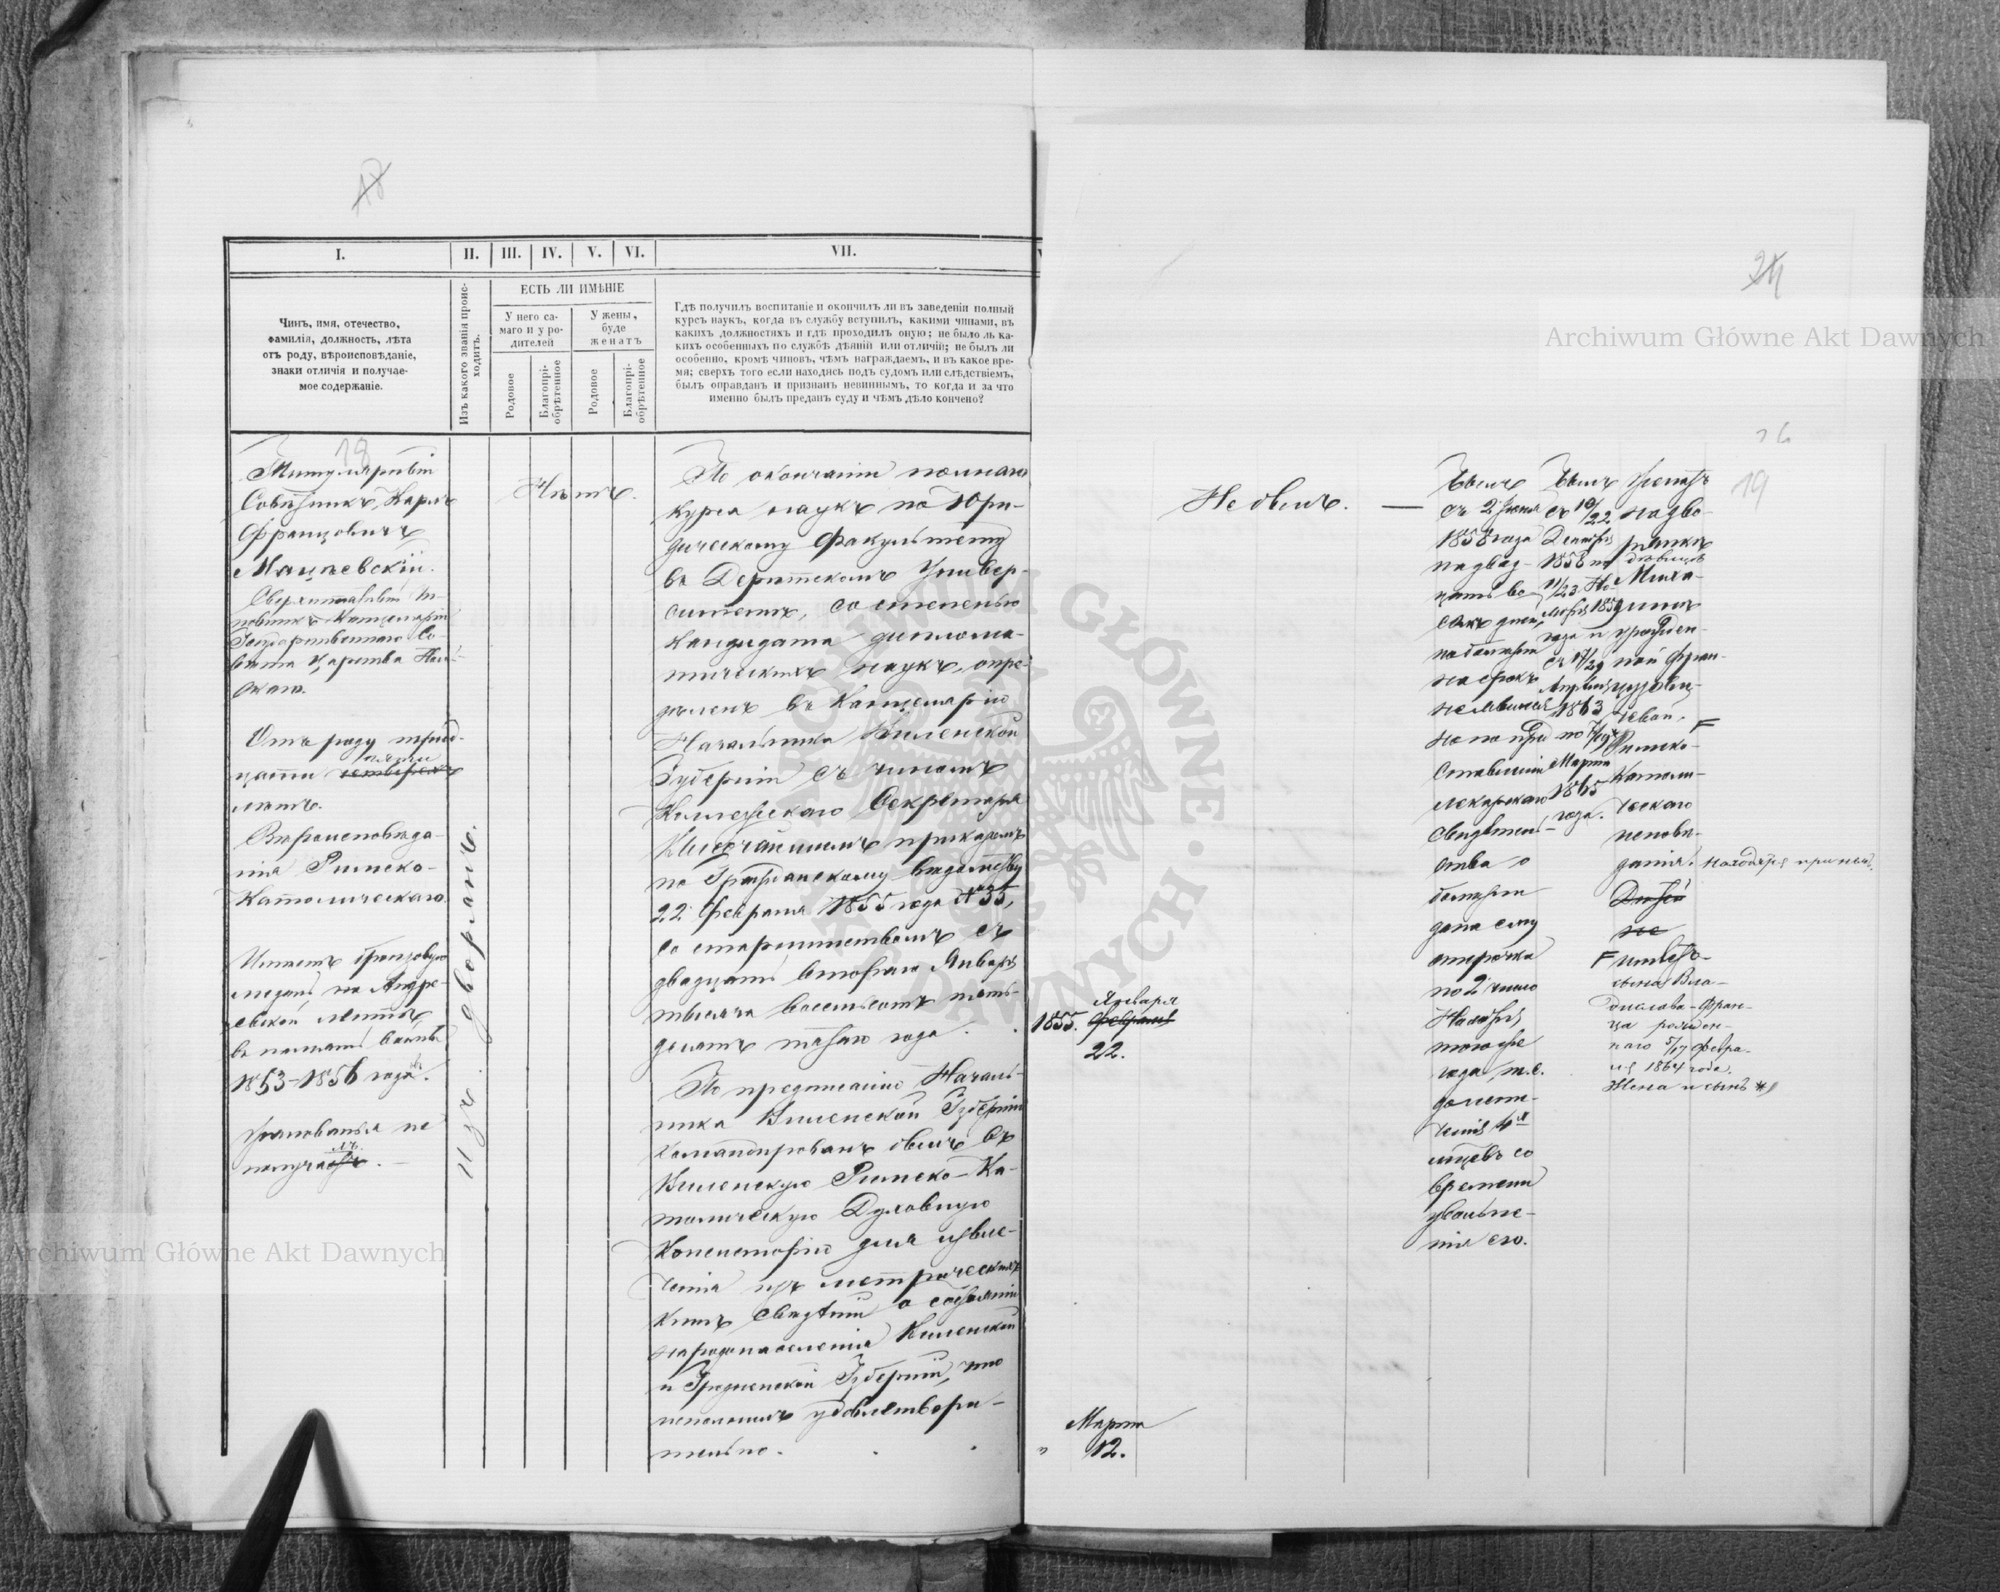 I. II. III. IV. V. VI. VII.
Чинъ, имя, отечество,
фамилія, должность, лѣта
отъ роду, вѣроисповѣданіе,
знаки отличія и получае-
мое содержаніе.
Изъ какого званія проис-
ходитъ.
ЕСТЬ ЛИ ИМѢНІЕ
У него са-
маго и у ро-
дителей
У жены,
буде
женатъ
Родовое
Благопрі-
обрѣтенное
Родовое
Благопрі-
обрѣтенное
Гдѣ получилъ воспитаніе и окончилъ ли въ заведеніи полный
курсъ наукъ, когда въ службу вступилъ, какими чинами, въ
какихъ должностяхъ и гдѣ проходилъ оную; не было ль ка-
кихъ особенныхъ по службѣ дѣяній или отличій; не былъ ли
особенно, кромѣ чиновъ, чѣмъ награждаемъ, и въ какое вре-
мя; сверхъ того если находясь подъ судомъ или слѣдствіемъ,
былъ оправданъ и признанъ невиннымъ, то когда и за что
именно былъ преданъ суду и чѣмъ дѣло кончено?
18
Титулярный
Совѣтникъ, Карлъ
Францовичъ
Мацѣевскій.
Сверхштатный чи-
новникъ Канцеляріи
Государственнаго Со-
вѣта Царства Поль-
скаго.
Отъ роду трид-
цати пяти четырехъ
лѣтъ.
Вѣроисповѣда-
нія Римско-
Католическаго.
Имѣетъ бронзовую
медаль на Андре-
евской лентѣ
въ память войны
1853-1856 годовъ.
Жалованья не
получаетъ. —
изъ дворянъ.
Нѣтъ.
По окончаніи полнаго
курса наукъ по Юри-
дическому факультету
въ Дерптскомъ Универ-
ситетѣ, со степенью
Кандидата диплома-
тическихъ наукъ, опре-
дѣленъ въ Канцелярію
Начальника Виленской
Губерніи съ чиномъ
Коллежскаго Секретаря
Высочайшимъ приказомъ
по Гражданскому вѣдомству
22 февраля 1855 года № 35,
со старшинствомъ съ
двадцать втораго Января
тысяча восемьсотъ пять-
десятъ пятаго года.
По предписанію Началь-
ника Виленской Губерніи
командированъ былъ въ
Виленскую Римско-Ка-
толическую Духовную
Консисторію для извле-
ченія изъ метрическихъ
книгъ свѣдѣній о состояніи
народонаселенія Виленской
и Гродненской Губерній, что
исполнилъ удовлетвори-
тельно.
1855. Января
февраля
22.
Марта
12.
Не былъ. —
Былъ
съ 2 Іюня
1858 года
на двад-
цать во-
семь дней,
по болѣзни
на срокъ
не явился
но по пред-
ставленіи
лекарскаго
свидѣтель-
ства о
болѣзни
дана ему
отсрочка
по 2 число
Ноября
того же
года, т.е.
до исте-
ченія 4х
мѣсяцевъ со
времени
увольне-
нія его.
Былъ
съ 10/22
Декабря
1858 по
11/23 Но-
ября 1859
года и
съ 17/29
Апрѣля
1863
по
Марта
1865
года.
Женатъ
на дво-
рянкѣ
дѣвицѣ
Миха-
линѣ
урожден-
ной Фран-
цузови-
чевой, F
Римско-
Католи-
ческаго
исповѣ-
данія.
Дѣтей
не
F имѣетъ
сына Вла-
дислава-Фран-
ца рожден-
наго 5/17 Февра-
ля 1864 года.
Жена и сынъ *)
19
Archiwum Główne Akt Dawnych
Archiwum Główne Akt Dawnych
ARCHIWUM GŁÓWNE AKT DAWNYCH